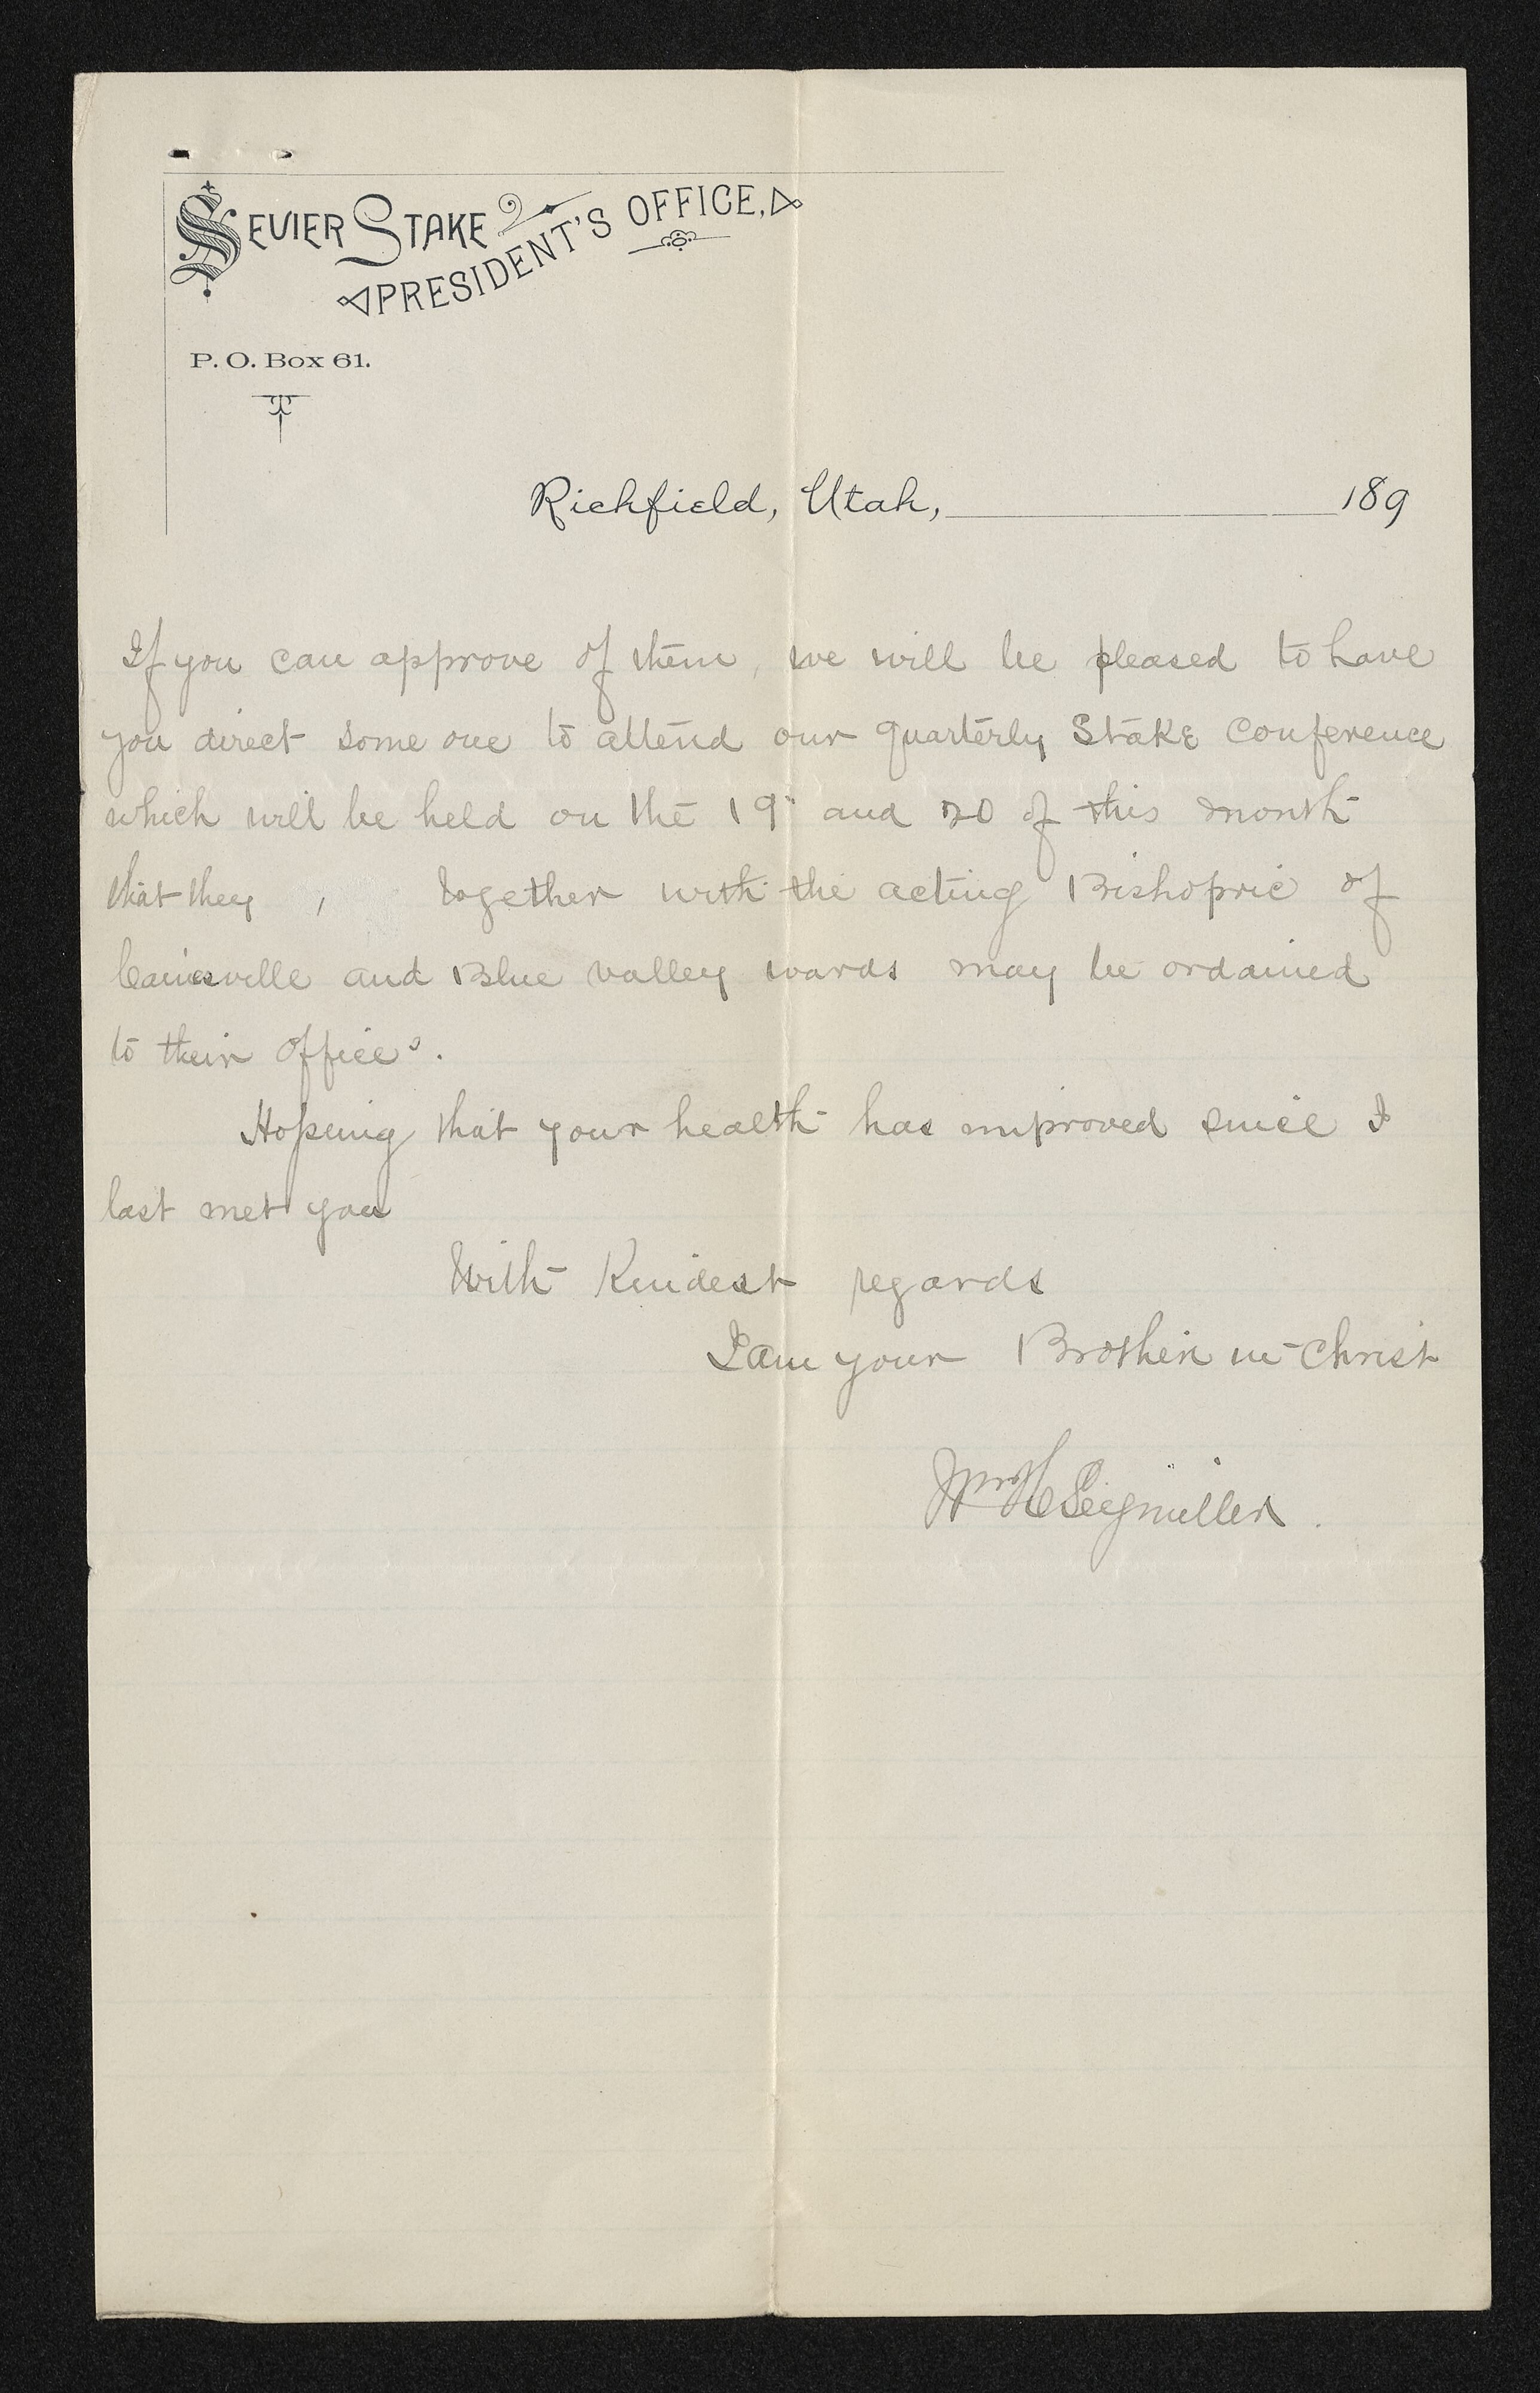 SEVIER STAKE
PRESIDENT'S OFFICE,
P. O. Box 61.
Richfield, Utah, 189
If you can approve of them, we will be pleased to have
you direct some one to attend our quarterly Stake Conference
which will be held on the 19" and 20 of this month
that they , together with the acting Bishopric of
Cainesville and Blue valley wards may be ordained
to their offices.
Hopeing that your health has improved since I
last met you
With Kindest regards
I am your Brother in Christ
Wm H Seegmiller.